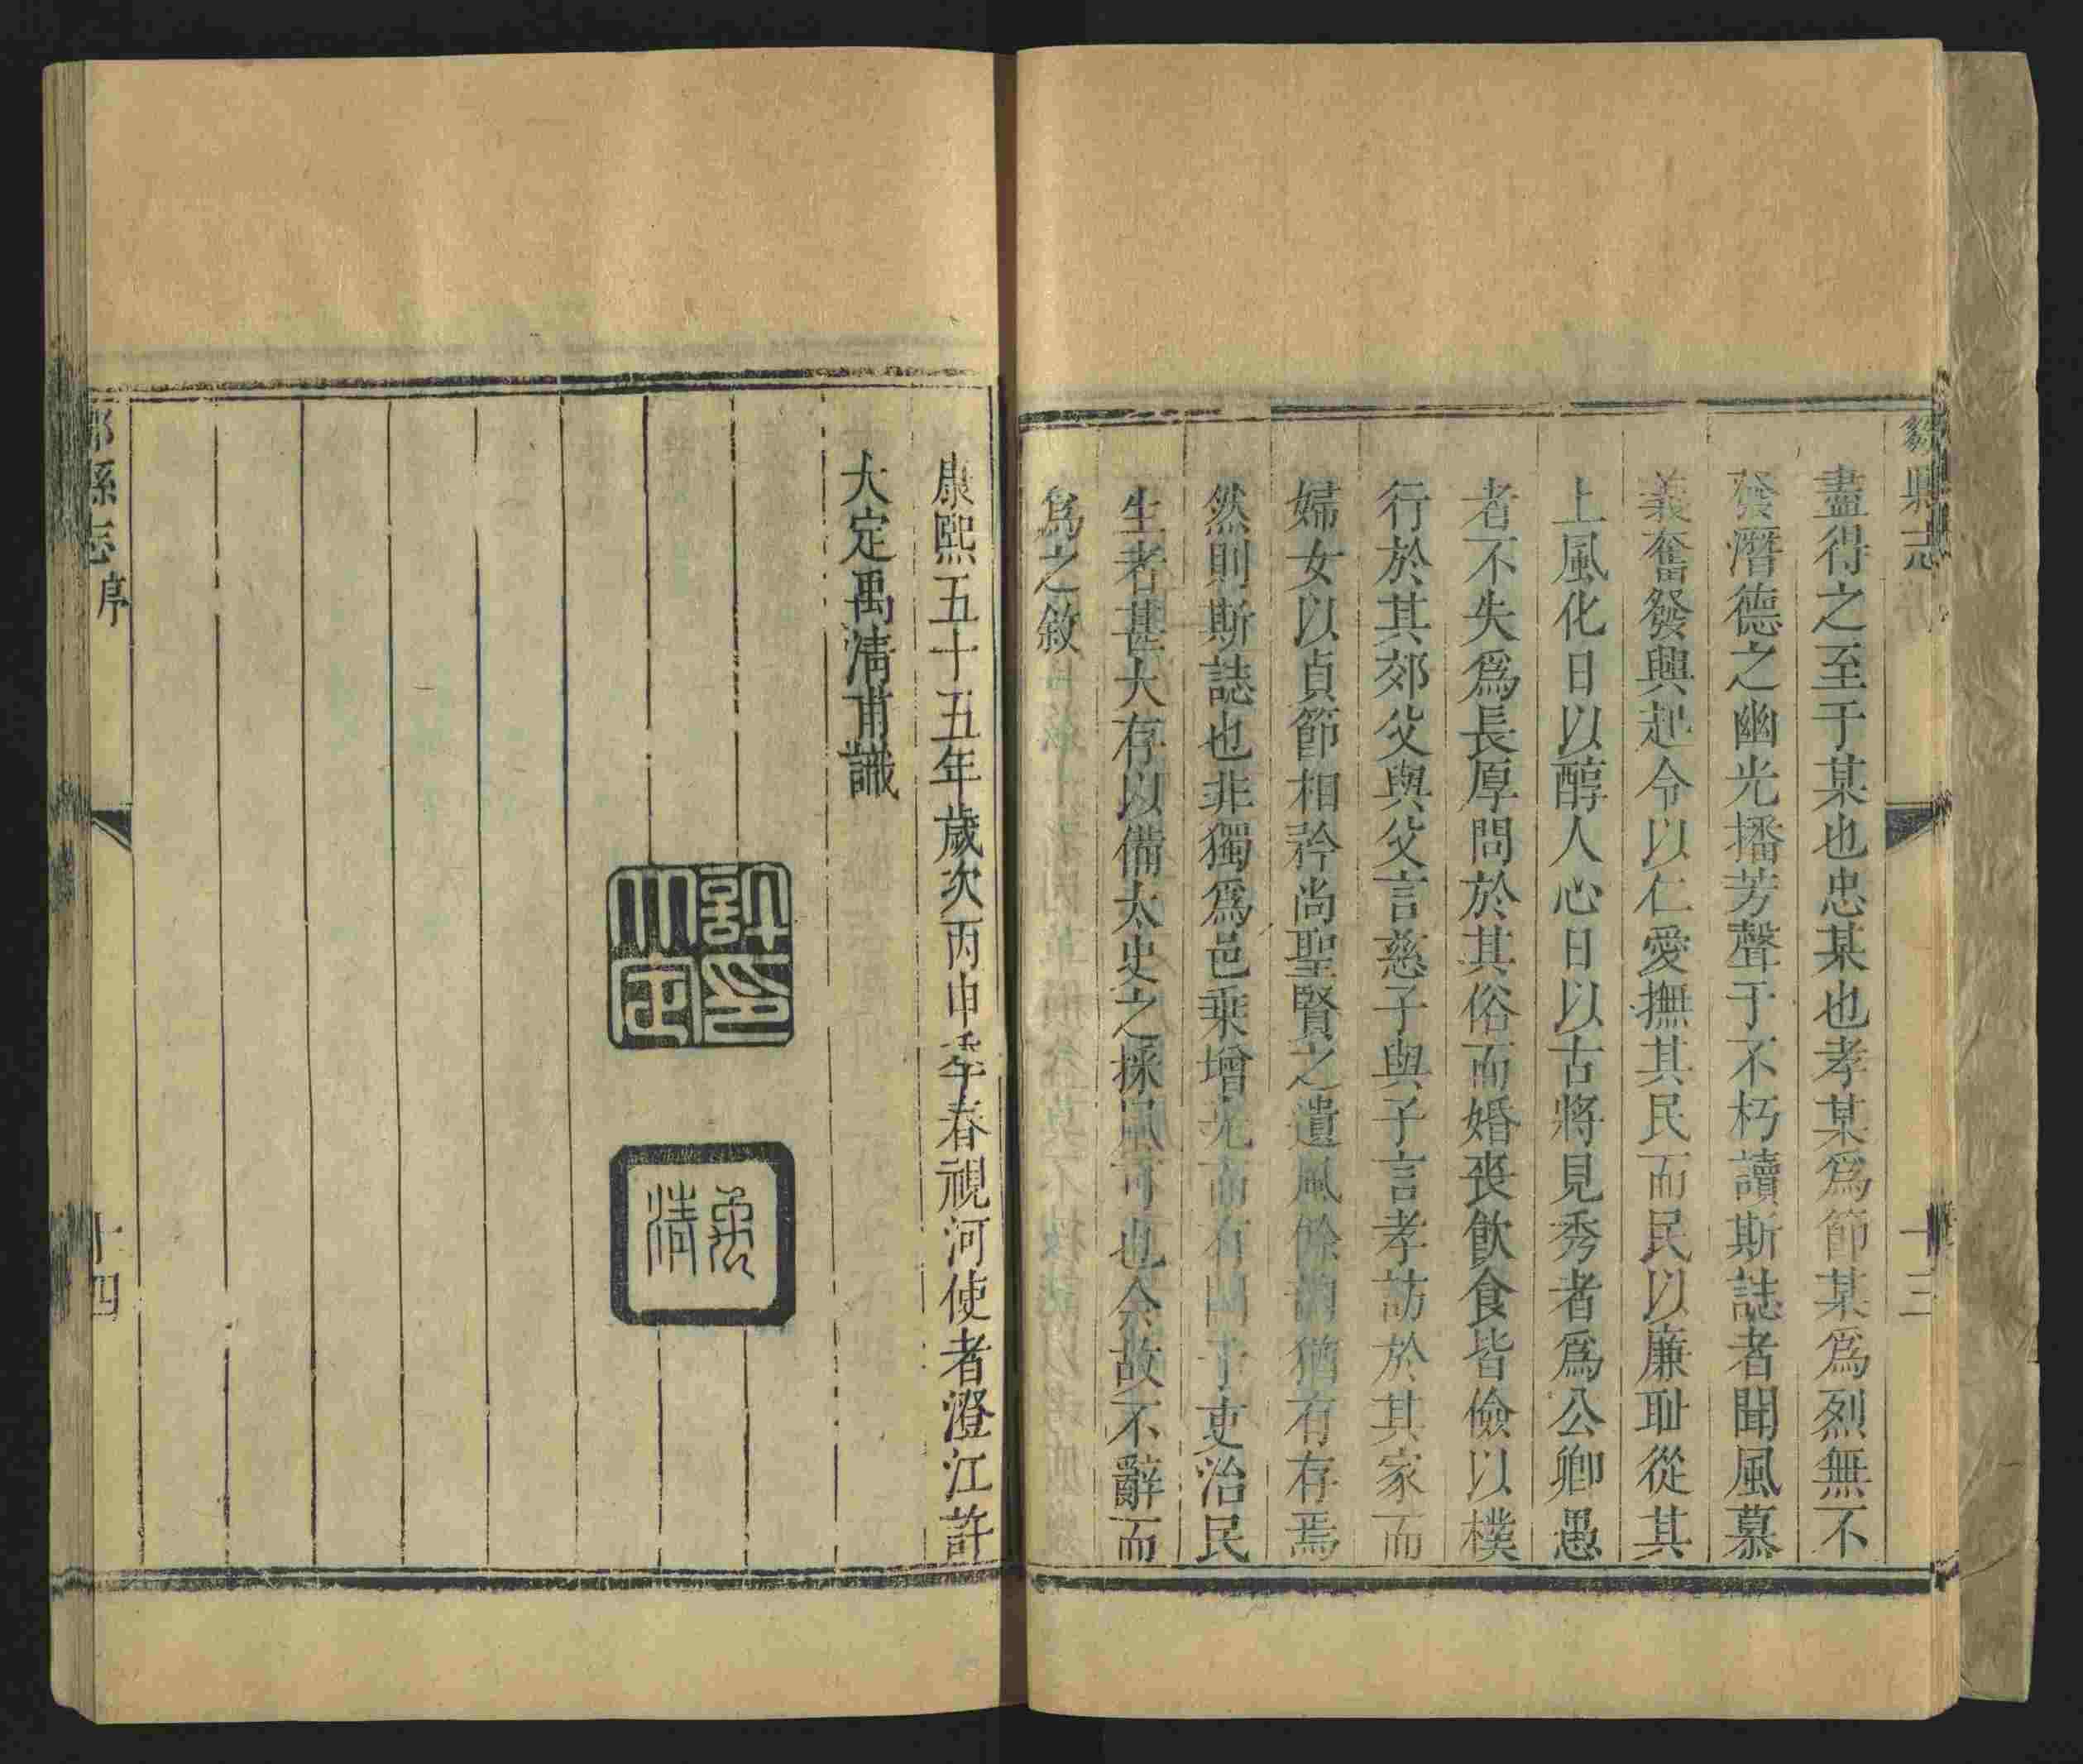 縣志
十三
盡得之至于某也忠某也孝某爲節某爲烈無不
發潛德之幽光播芳聲于不朽讀斯誌者聞風慕
義奮發興起令以仁愛撫其民而民以廉耻從其
上風化日以醇人心日以古將見秀者爲公卿愚
者不失爲長厚問於其俗而婚喪飲食皆儉以樸
行於其郊父與父言慈子與子言孝訪於其家而
婦女以貞節相矜尚聖賢之遺風餘韵猶有存焉
然則斯誌也非獨爲邑乗增光而有關于吏治民
生者甚大存以備太史之採風可也余故不辭而
爲之敘
康熙五十五年歲次丙申季春視河使者澄江許
大定禹清甫識
許印大定
禹清
縣志 序
十四